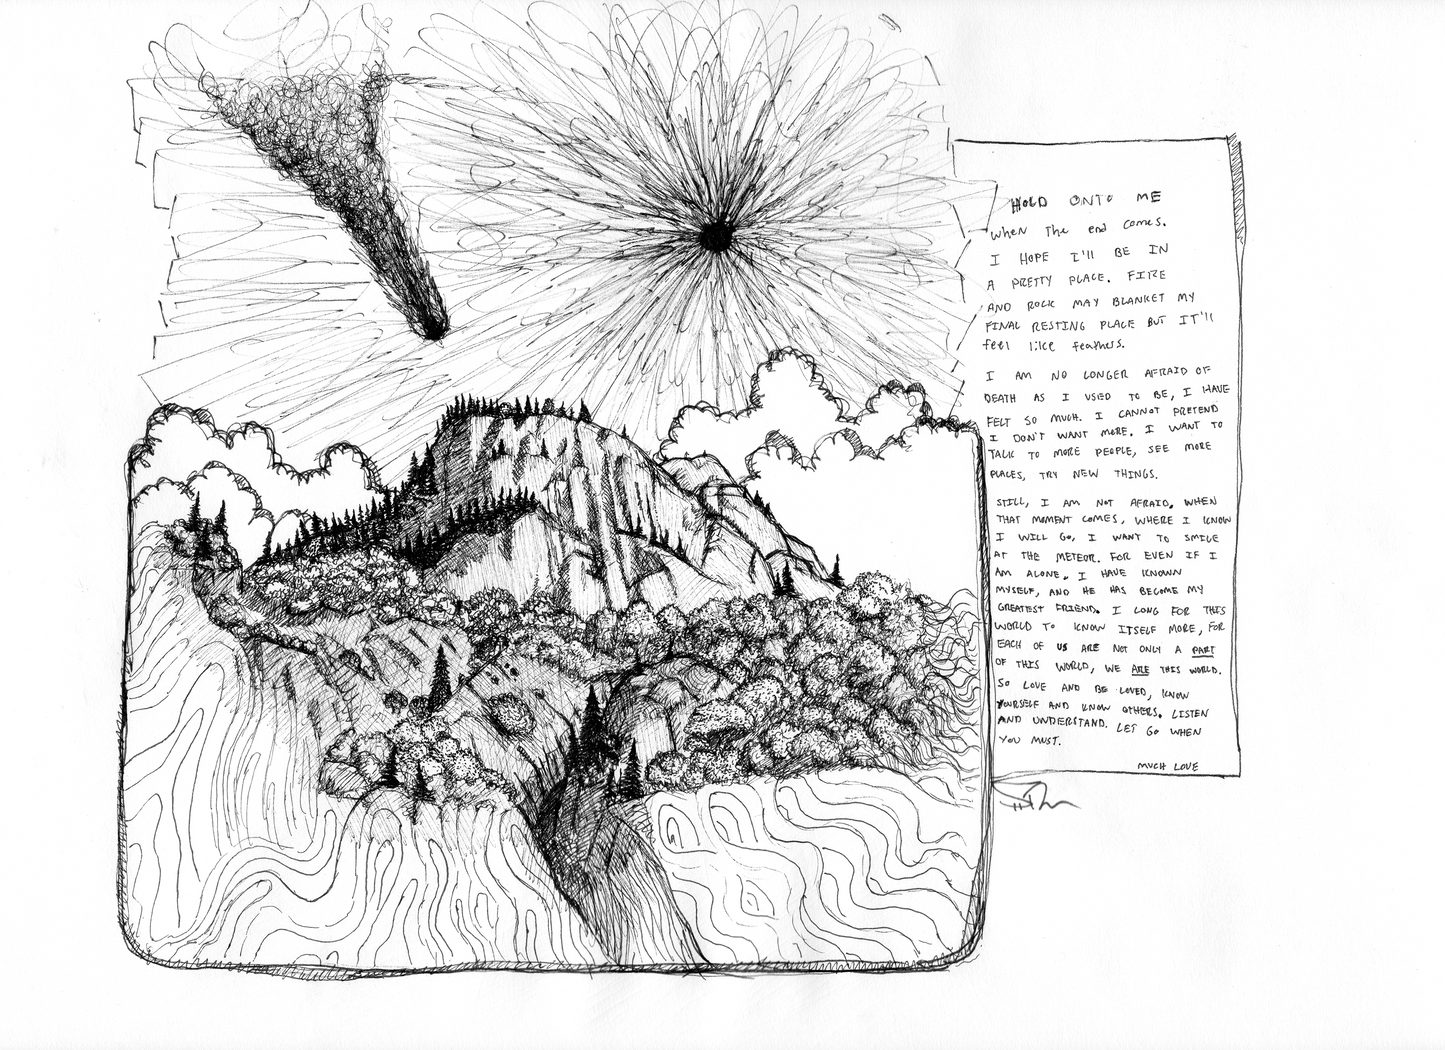 HOLD ONTO ME
when the end comes.
I HOPE I'll BE IN
A PRETTY PLACE. FIRE
AND ROCK MAY BLANKET MY
FINAL RESTING PLACE BUT IT'll
feel like feathers.
I AM NO LONGER AFRAID OF
DEATH AS I USED TO BE, I HAVE
FELT SO MUCH. I CANNOT PRETEND
I DON'T WANT MORE. I WANT TO
TALK TO MORE PEOPLE, SEE MORE
PLACES, TRY NEW THINGS.
STILL, I AM NOT AFRAID. WHEN
THAT MOMENT COMES, WHERE I KNOW
I WILL GO, I WANT TO SMILE
AT THE METEOR. FOR EVEN IF I
AM ALONE. I HAVE KNOWN
MYSELF, AND HE HAS BECOME MY
GREATEST FRIEND. I LONG FOR THIS
WORLD TO KNOW ITSELF MORE, FOR
EACH OF US ARE NOT ONLY A PART
OF THIS WORLD, WE ARE THIS WORLD.
SO LOVE AND BE LOVED, KNOW
YOURSELF AND KNOW OTHERS. LISTEN
AND UNDERSTAND. LET GO WHEN
YOU MUST.
MUCH LOVE